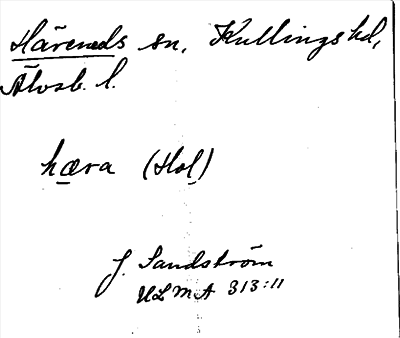 Häreneds sn, Kullings hd,
Älvsb. l.
hæra (Hol)
J. Sandström
ULMA 313:11